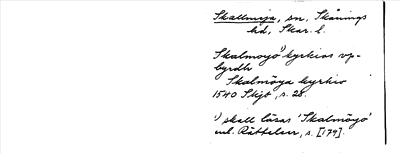 Skallmeja, sn, Skånings
hd, Skar. l.
Skalmoyo¹⁾ kyrkios vp-
byrdh
Skalmöya kyrkio
1540 Skjt, s. 28.
¹⁾ skall läsas 'Skalmöyo'
enl. Rättelser, s. [179].